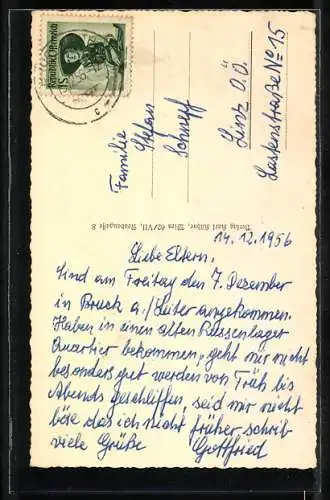 Republik Österreich
1 S
Familie
Stefan
Schneeff
Linz O.Ö.
Verlag Karl Kühne, Wien 62/VII, Neubaugasse 8
14.12.1956
Liebe Eltern.
Sind am Freitag den 7. Dezember
in Bruck a./Leiter angekommen.
Haben in einen alten Russenlager
Quartier bekommen, geht mir nicht
besonders gut werden von Früh bis
Abends geschliffen, seid mir nicht
böse das ich nicht früher schrib
viele Grüße Gottfried